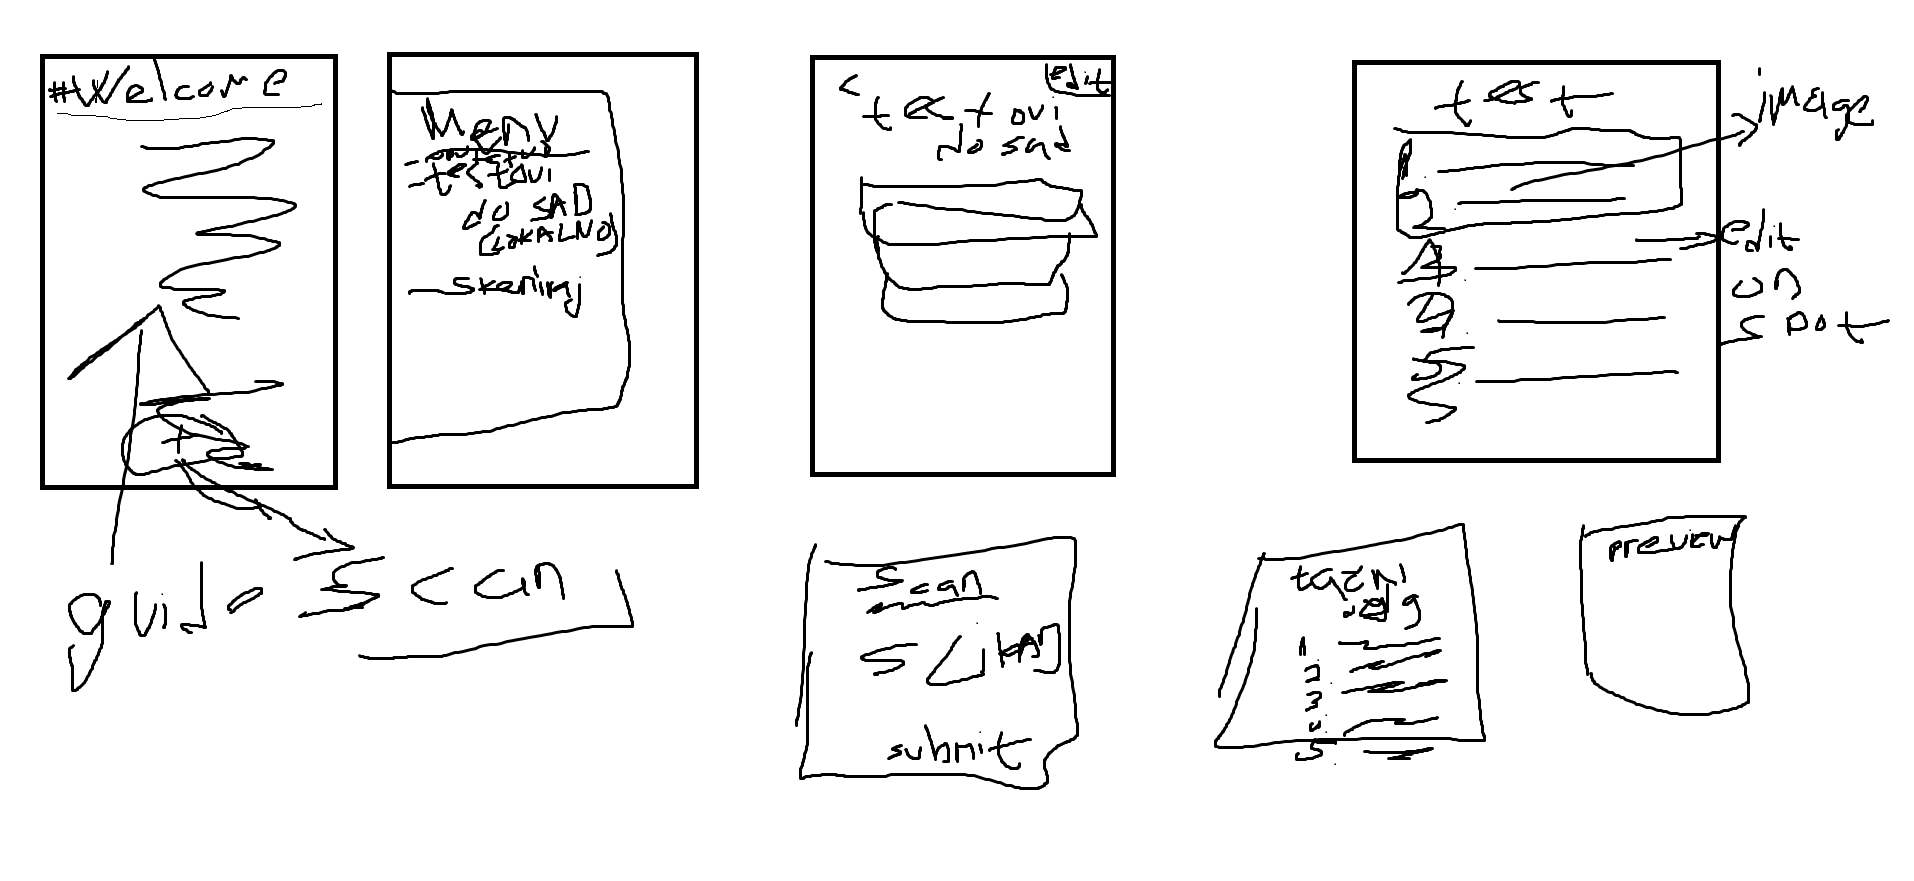 #Welcome
+
guid
Scan
Meny
- testovi
do SAD
(LOKALNO)
- skeniraj
<
edit
testovi
do sad
test
1
2
4
5
image
edit
on
spot
Scan
slikaj
submit
tacni
1
2
3
4
5
preview